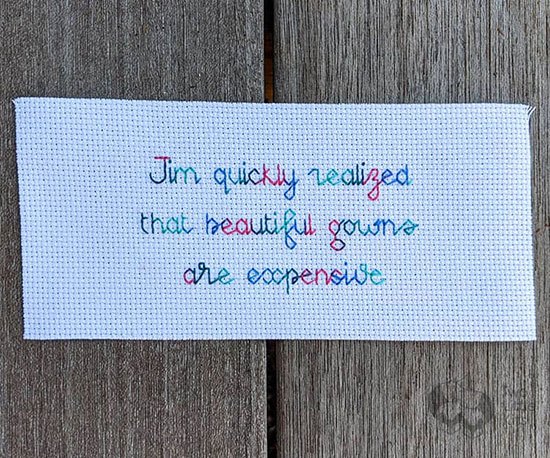 Jim quickly realized
that beautiful gowns
are expensive